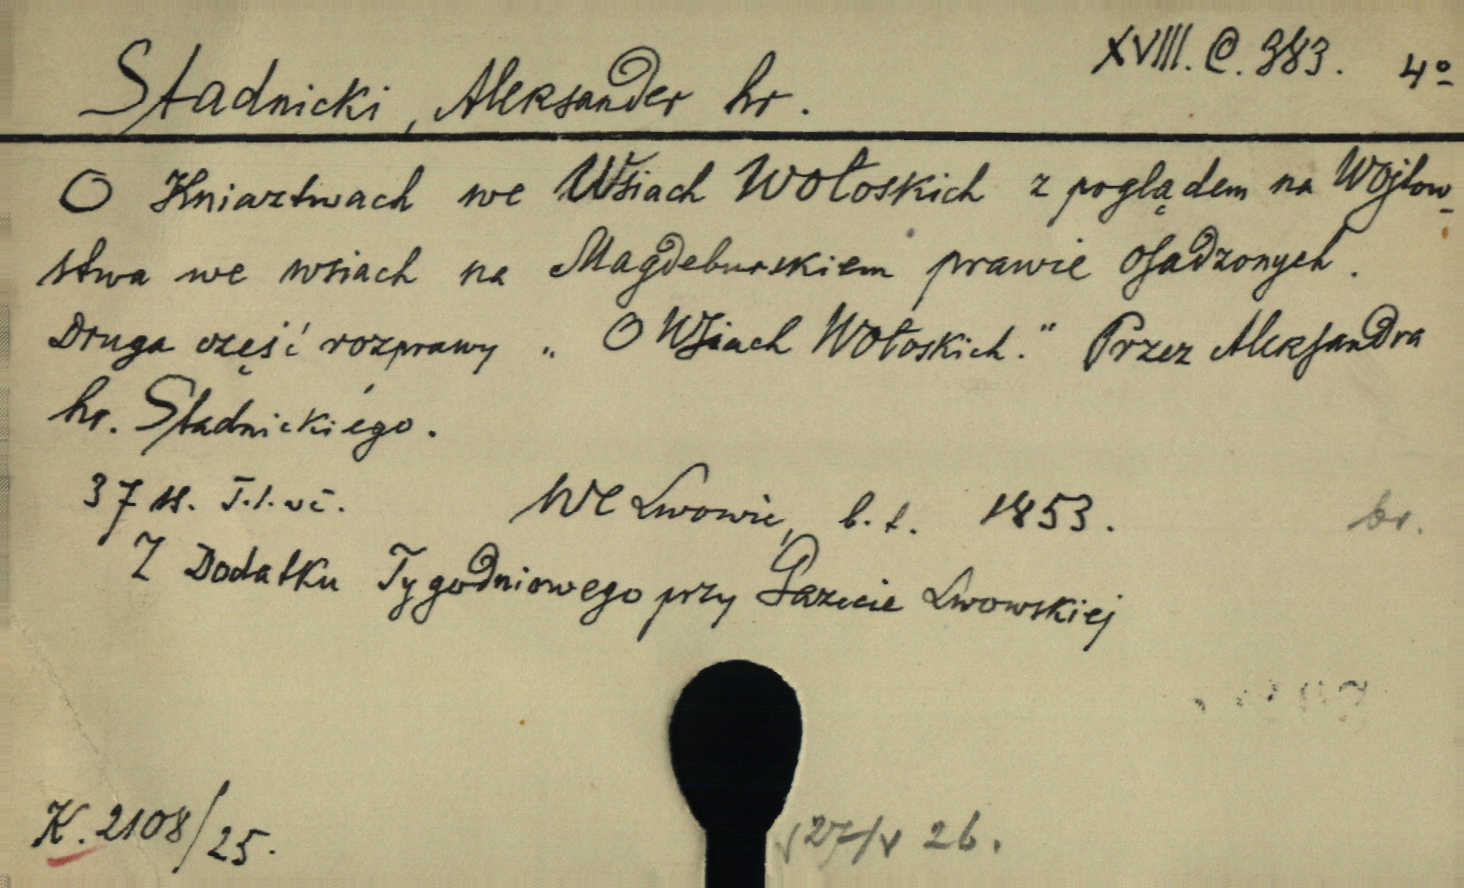 XVIII. C. 383. 4º
Stadnicki, Aleksander hr.
O Kniaztwach we Wsiach Wołoskich z poglądem na Wojtow-
stwa we wsiach na Magdeburskiem prawie osadzonych.
Druga część rozprawy „O Wsiach Wołoskich." Przez Aleksandra
hr. Stadnickiégo.
37 ss.
We Lwowie, b. t. 1853. br.
Z Dodatku Tygodniowego przy Gazecie Lwowskiej
K. 2108/25.
27/V 26.